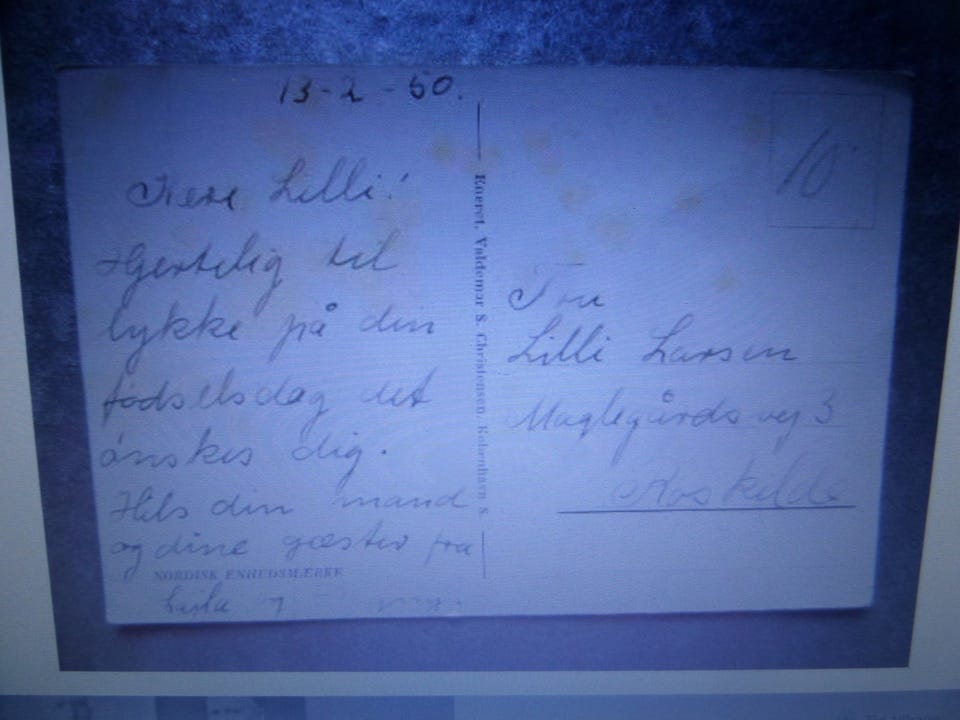 13-2-50.
Kære Lilli!
Hjertelig til
lykke på din
fødselsdag det
ønskes dig.
Hils din mand
og dine gæster fra
NORDISK ENHEDSMÆRKE
Eneret. Valdemar S. Christensen. København S.
10
Fru
Lilli Larsen
Maglegårdsvej 3
Roskilde